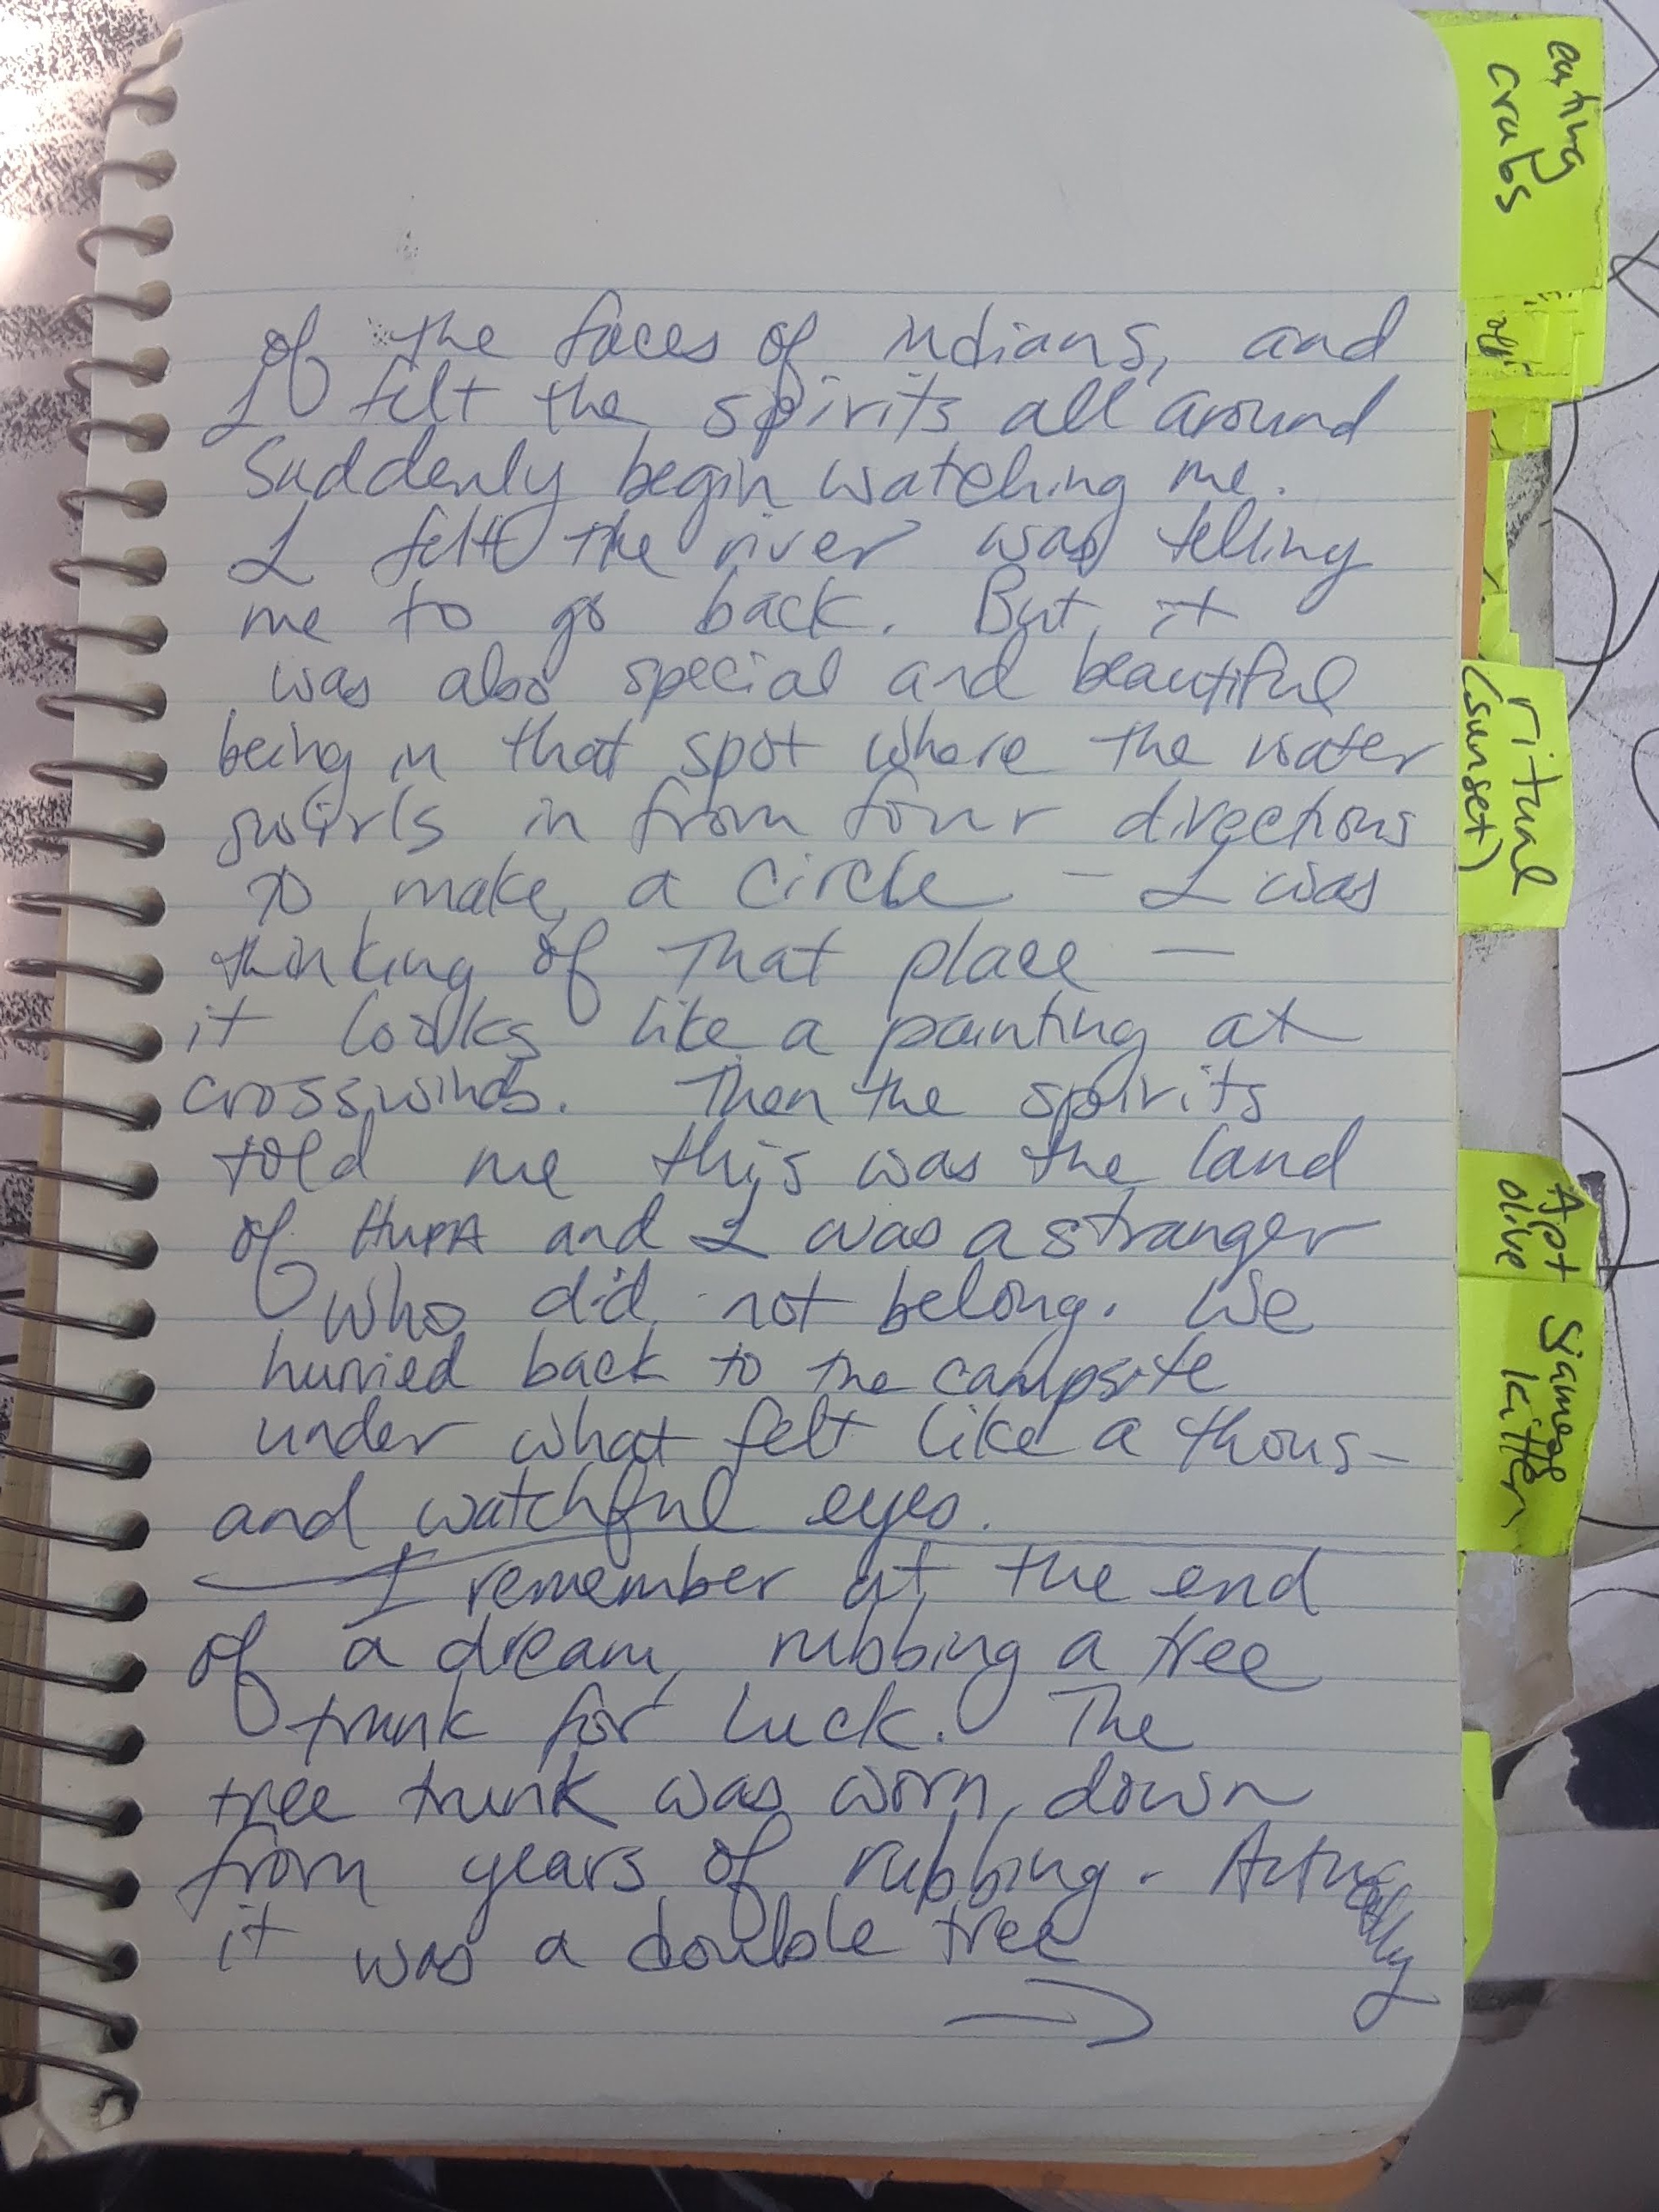 of the faces of indians, and
I felt the spirits all around
Suddenly begin watching me.
I felt the river was telling
me to go back. But it
was also special and beautiful
being in that spot where the water
swirls in from four directions
to make a circle - I was
thinking of that place —
it looks like a painting at
crosswinds. Then the spirits
told me this was the land
of HUPA and I was a stranger
who did not belong. We
hurried back to the campsite
under what felt like a thous-
and watchful eyes.
I remember at the end
of a dream, rubbing a tree
trunk for luck. The
tree trunk was worn down
from years of rubbing. Actually
it was a double tree
→
eating
crabs
ritual
(sunset)
Apt
olive
Siamese
kitten